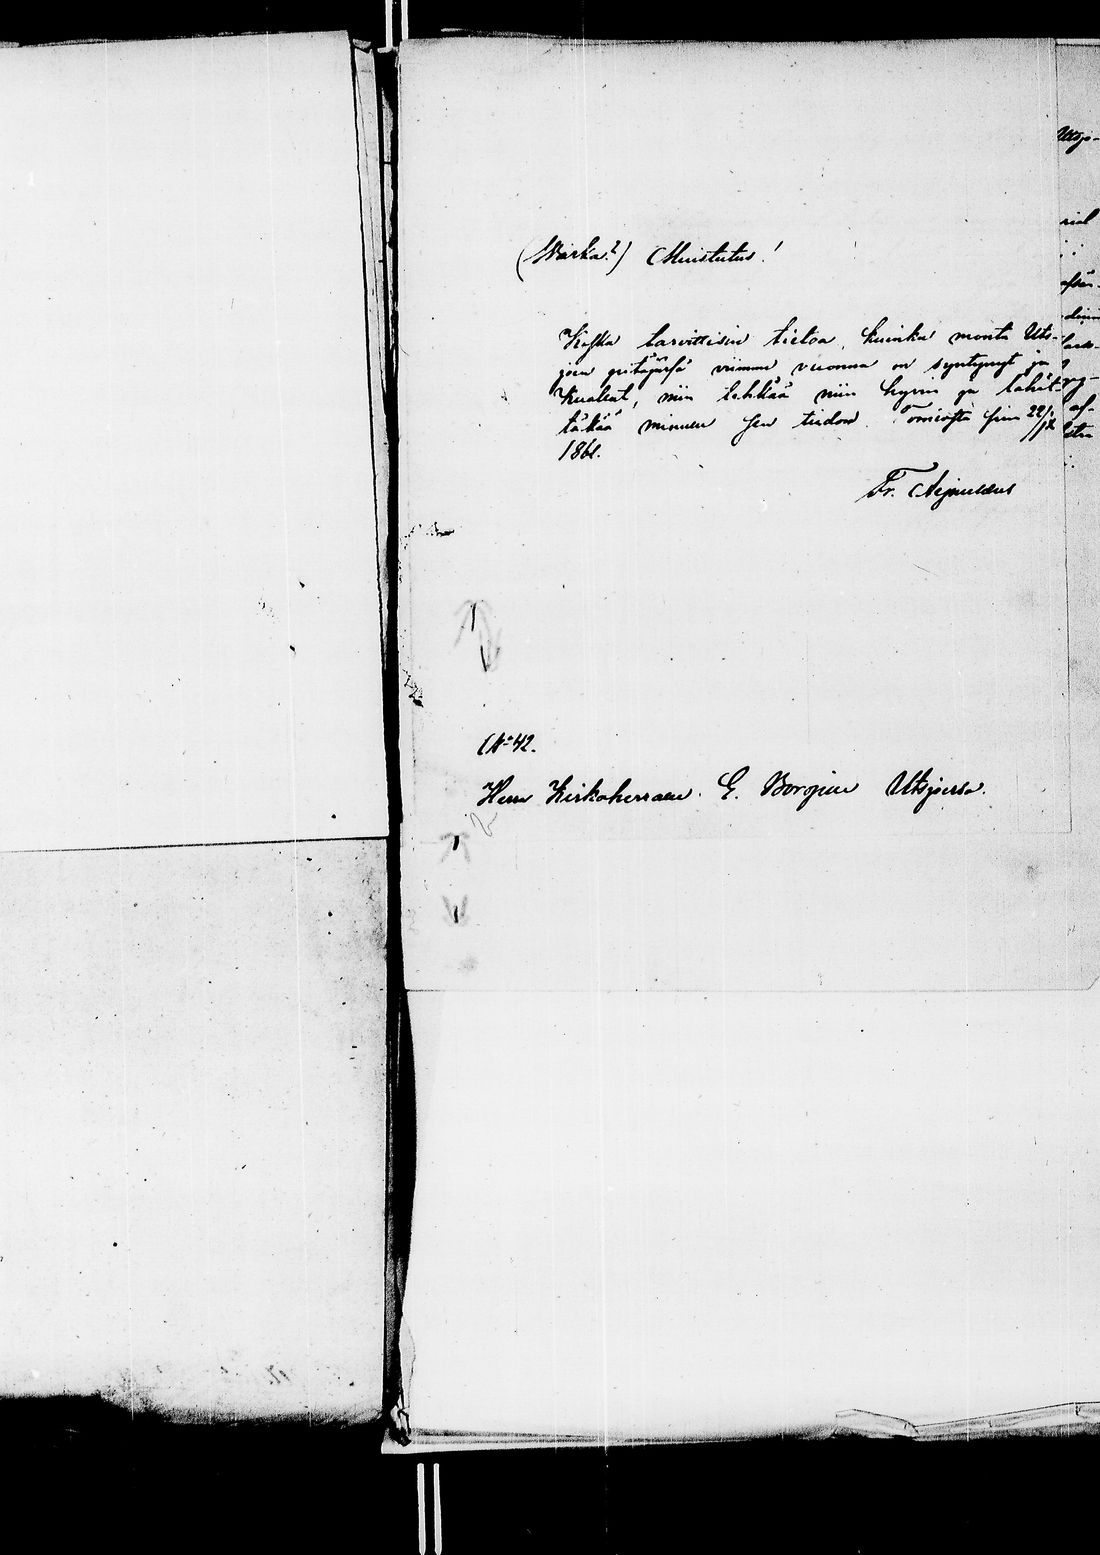 (Warka?) Muistutus!
Koska tarvittisin tietoa, kuinka monta Uts-
joen pitäjäsä viimme vuonna on syntynyt ja
kuollut, niin tehkää niin hyvin ja lähät-
täkää minulle sen tiedon. Tornioſta 22/12
1861.
Fr.
No 42.
Herra Kirkoherralle E. Borgin Utsjoella.
Utsjo-
rial